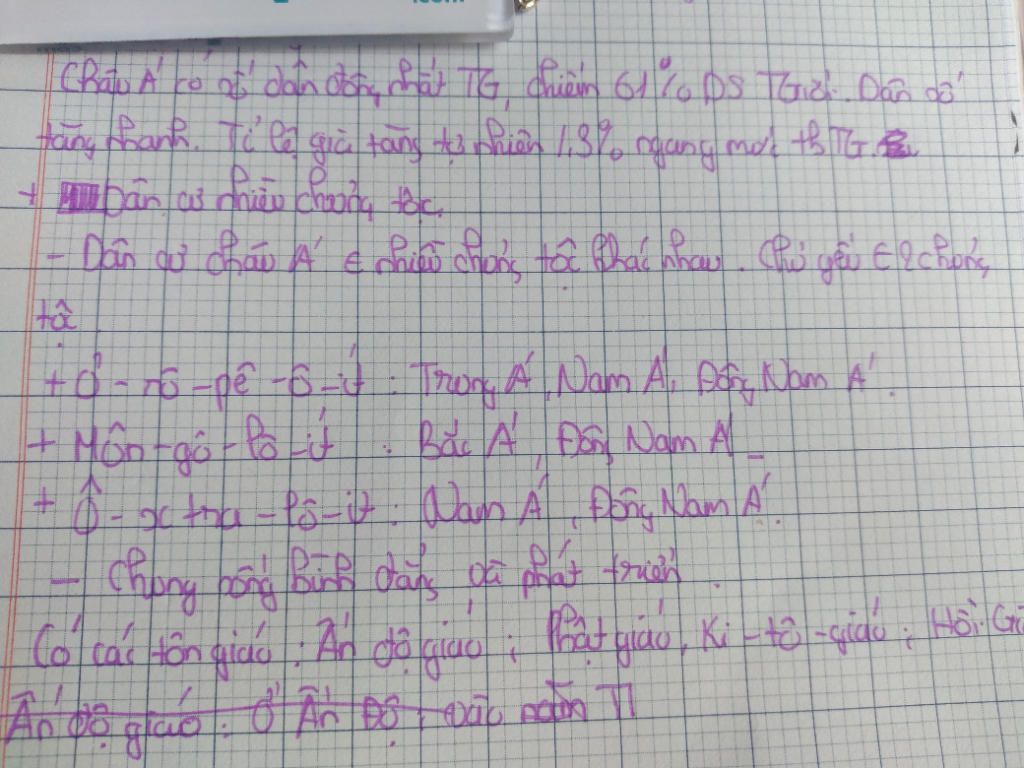 .com
Châu Á có số dân đông nhất TG, chiếm 61% DS TGiới. Dân số
tăng nhanh. Tỉ lệ gia tăng tự nhiên 1,3% ngang mức tb TG.
+ Dân cư nhiều chủng tộc.
- Dân cư châu Á ∈ nhiều chủng tộc khác nhau. Chủ yếu ∈ 2 chủng
tộc
+ Ơ-rô-pê-ô-ít : Trung Á, Nam Á, Đông Nam Á.
+ Môn-gô-lô-ít : Bắc Á, Đông Nam Á
+ Ô-xtra-lô-ít : Nam Á, Đông Nam Á.
- Chung sống bình đẳng và phát triển.
Có các tôn giáo : Ấn độ giáo ; Phật giáo, Ki-tô-giáo ; Hồi Gi
Ấn độ giáo : Ở Ấn Độ,